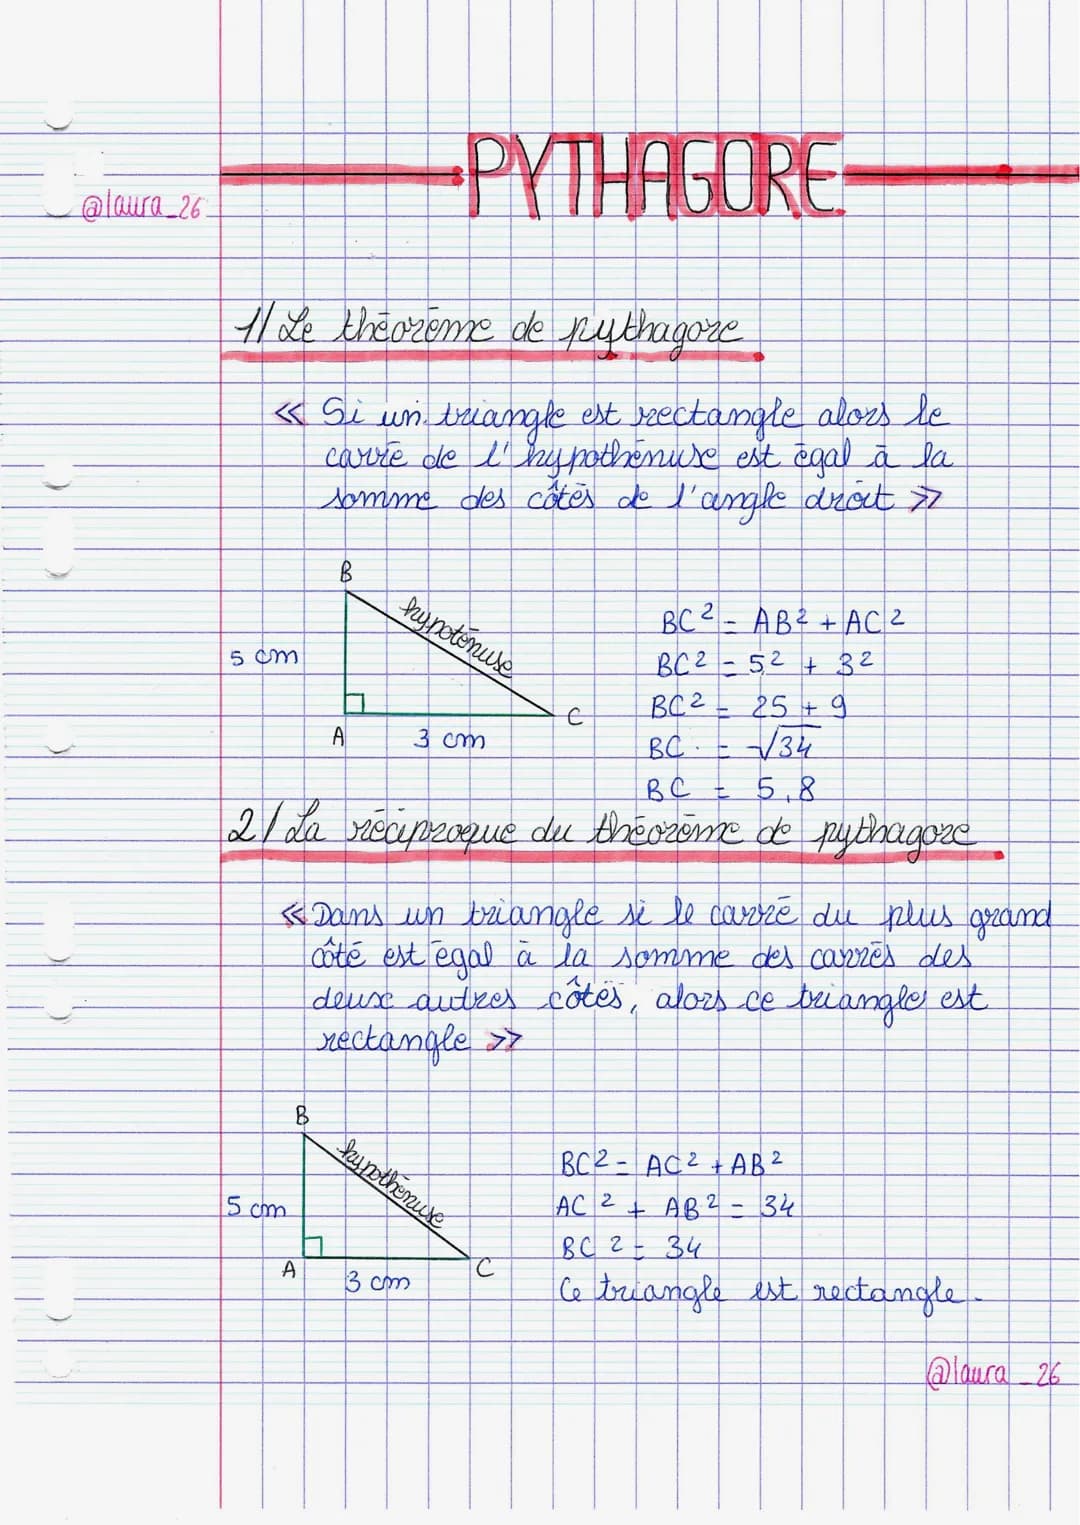 PYTHAGORE
@laura_26
1/ Le théorème de pythagore
« Si un triangle est rectangle alors le
carré de l'hypothénuse est égal à la
somme des côtés de l'angle droit »
B
hypoténuse
5 cm
A
3 cm
C
BC² = AB² + AC²
BC² = 5² + 3²
BC² = 25 + 9
BC = √34
BC = 5,8
2/ La réciproque du théorème de pythagore
« Dans un triangle si le carré du plus grand
côté est égal à la somme des carrés des
deux autres côtés, alors ce triangle est
rectangle »
B
hypothénuse
5 cm
A
3 cm
C
BC² = AC² + AB²
AC² + AB² = 34
BC² = 34
Ce triangle est rectangle.
@laura_26